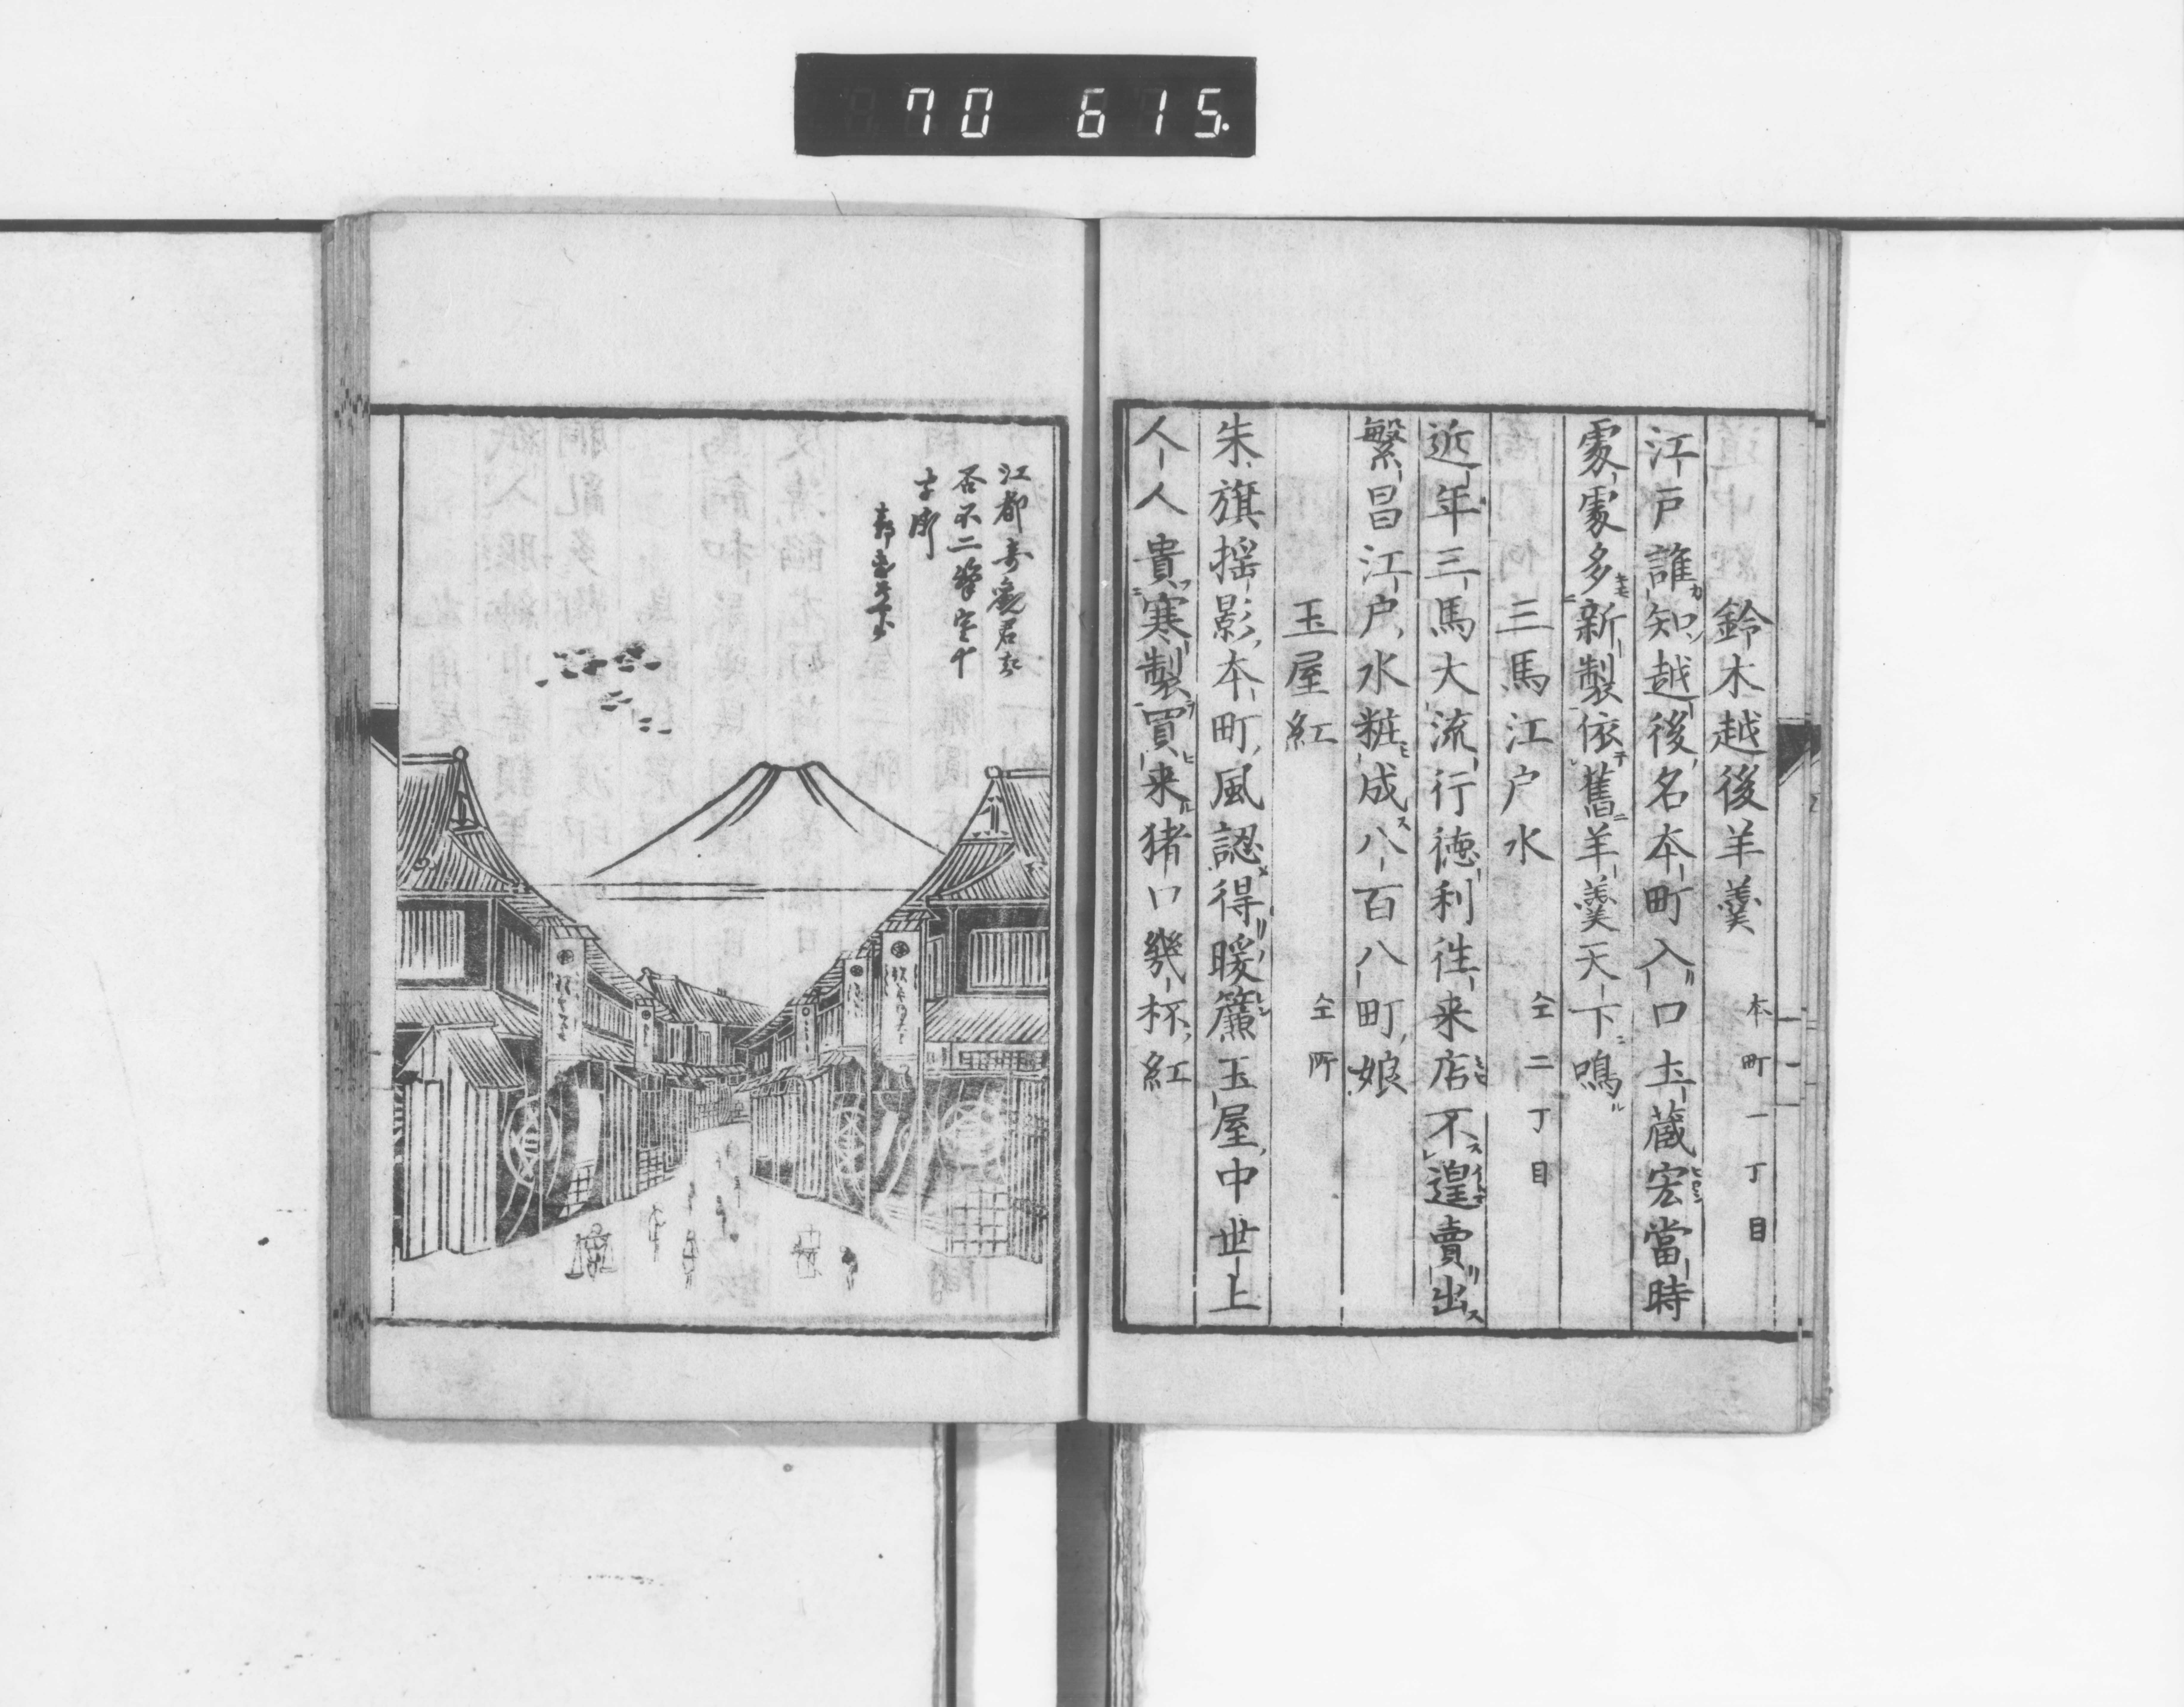 70 615.
鈴木越後羊羹 本町一丁目
江戸誰知越後名本町入口土蔵宏當時
處處多新製依舊羊羹天下鳴
三馬江戸水 仝二丁目
近年三馬大流行徳利往来店不遑賣出
繁昌江戸水粧成八百八町娘
玉屋紅 仝所
朱旗揺影本町風認得暖簾玉屋中世上
人人貴寒製買来猪口幾杯紅
江都壽